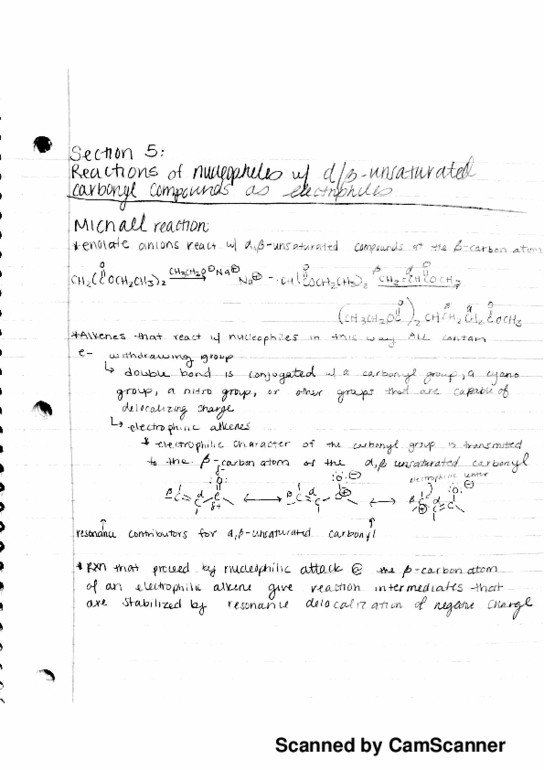 Section 5:
Reactions of nucleophiles w/ α/β-unsaturated
carbonyl compounds as electrophiles
Micnall reaction:
*enolate anions react w/ α,β-unsaturated compounds at the β-carbon atom
O O β α O
CH₂(COCH₂CH₃)₂ CH₃CH₂O⊖Na⊕ Na⊕ -:CH(COCH₂CH₃)₂ CH₂=CHCOCH₃
O O
(CH₃CH₂OC)₂CHCH₂CH₂COCH₃
*Alkenes that react w/ nucleophiles in this way ALL contain
e- withdrawing group
↳ double bond is conjugated w/ a carbonyl group, a cyano
group, a nitro group, or other groups that are capable of
delocalizing charge
↳ electrophilic alkenes
* electrophilic character of the carbonyl group is transmitted
to the β-carbon atom of the α,β unsaturated carbonyl
electrophilic center
resonance contributors for α,β-unsaturated carbonyl
*Rxn that proceed by nucleophilic attack @ the β-carbon atom
of an electrophilic alkene give reaction intermediates that
are stabilized by resonance delocalization of negative charge
Scanned by CamScanner